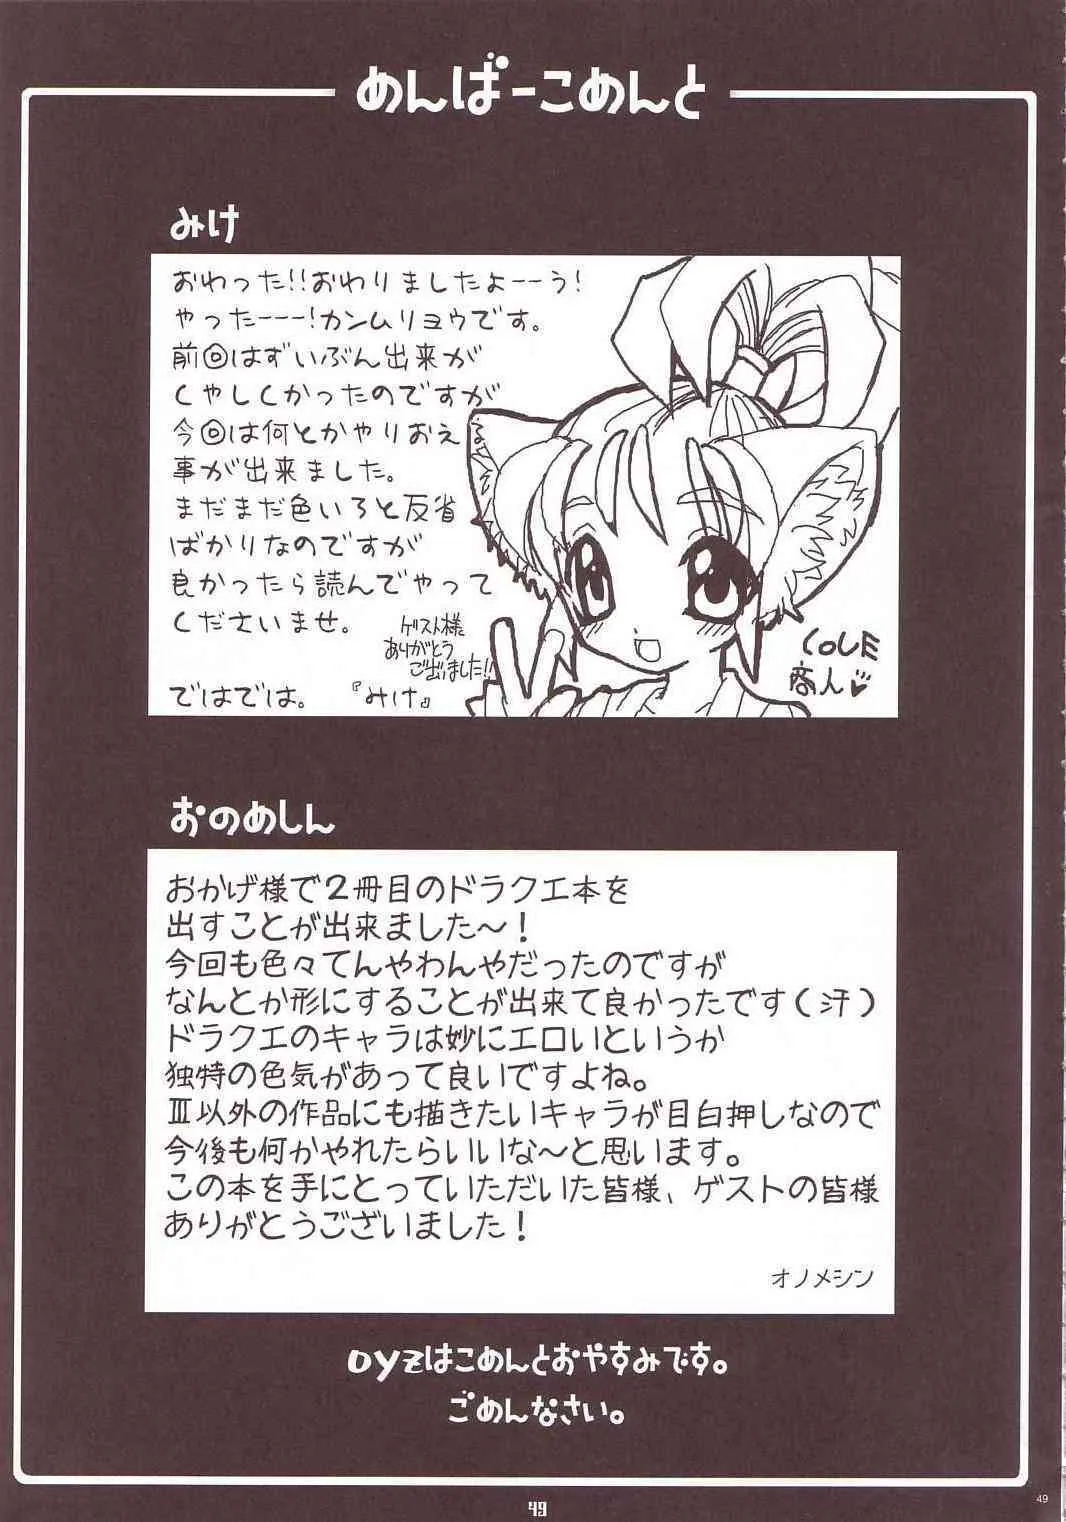 めんばーこめんと
みけ
おわった!!おわりましたよーーう!
やったーーー!カンムリョウです。
前回はずいぶん出来が
くやしくかったのですが
今回は何とかやりおえる
事が出来ました。
まだまだ色いろと反省
ばかりなのですが
良かったら読んでやって
くださいませ。
ゲスト様
ありがとう
ご出ました!!
ではでは。 『みけ』
COLE
商人
おのめしん
おかげ様で2冊目のドラクエ本を
出すことが出来ました〜!
今回も色々てんやわんやだったのですが
なんとか形にすることが出来て良かったです(汗)
ドラクエのキャラは妙にエロいというか
独特の色気があって良いですよね。
Ⅲ以外の作品にも描きたいキャラが目白押しなので
今後も何かやれたらいいな〜と思います。
この本を手にとっていただいた皆様、ゲストの皆様
ありがとうございました!
オノメシン
OYZはこめんとおやすみです。
ごめんなさい。
49
49